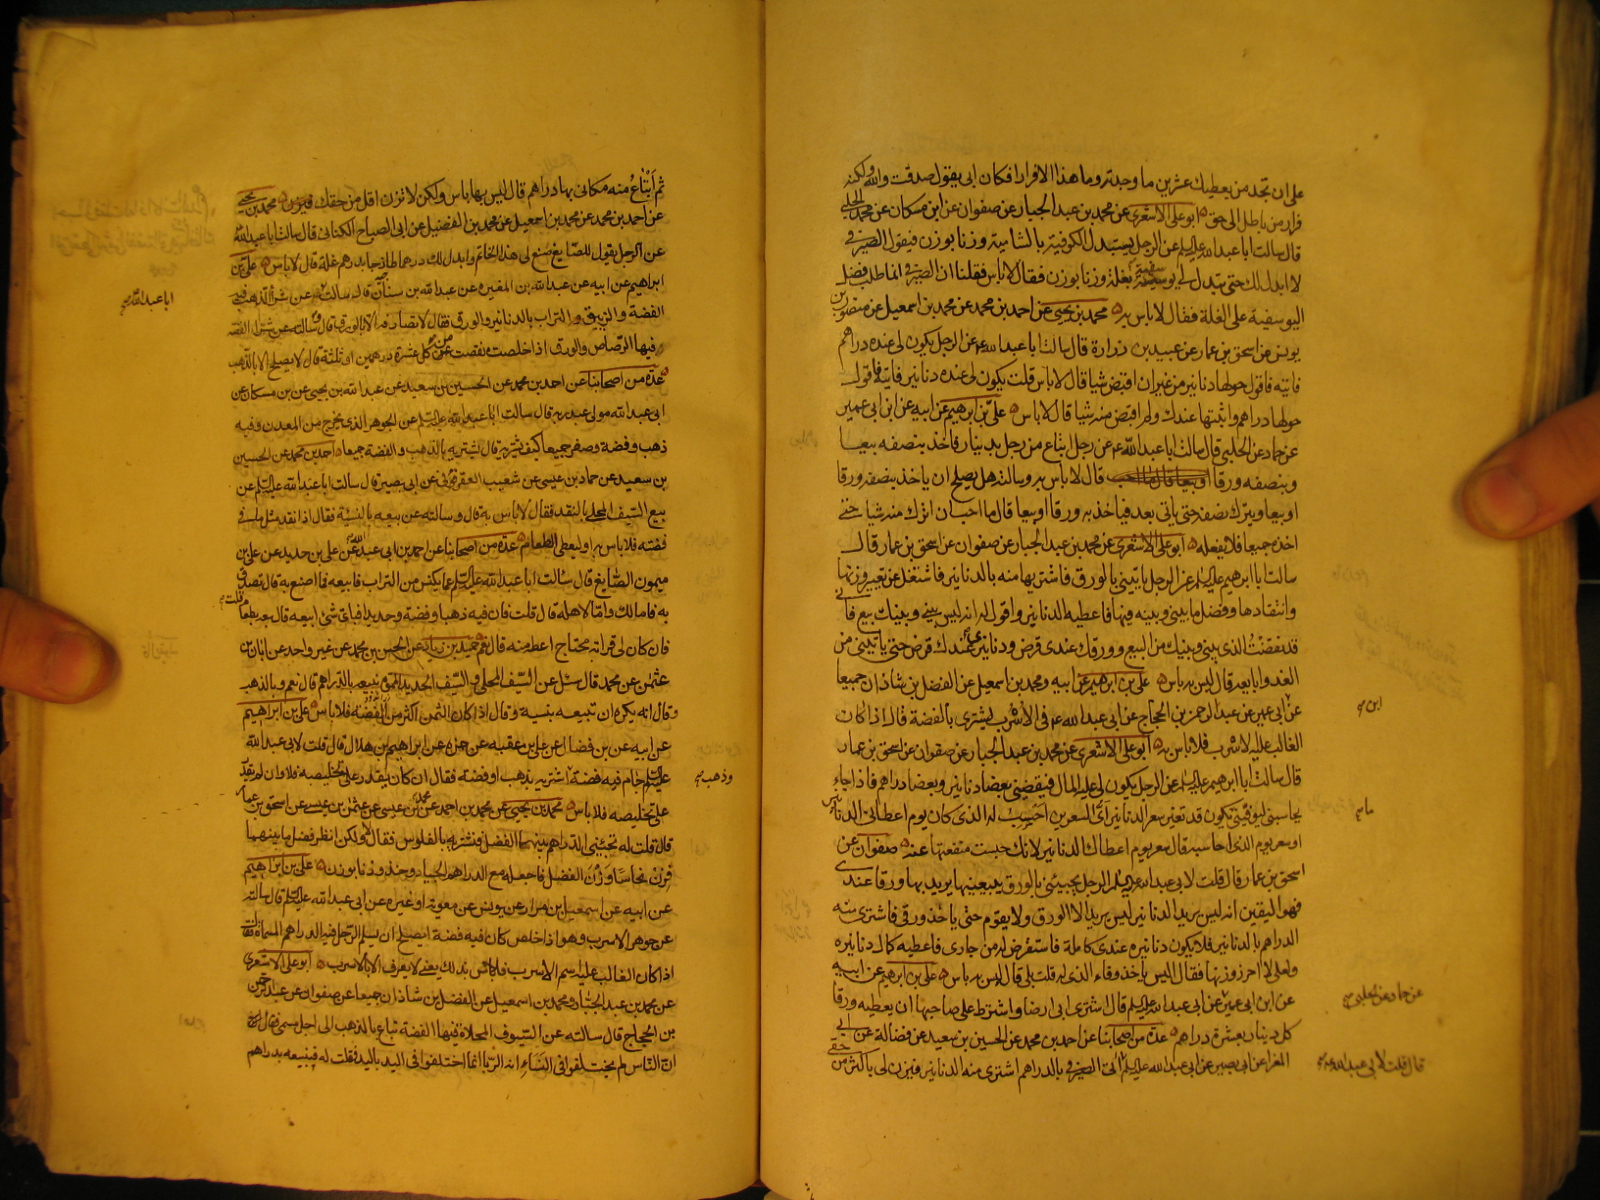 على ان تجد من يعطيك عشرين ما وجدته وما هذا الا فرار فكان ابى يقول صدقت والله ولكنه
فرار من باطل الى حق ابو على الاشعرى عن محمد بن عبد الجبار عن صفوان عن ابن مسكان عن محمد الحلبى
قال سالت ابا عبد الله عليه السلم عن الرجل يستبدل الكوفية بالشامية وزنا بوزن فيقول الصيرفى
لا ابدل لك حتى تبدل لى يوسفية بغلة وزنا بوزن فقال لا باس فقلنا ان الصيرفى انما طلب فضل
اليوسفية على الغلة فقال لا باس به محمد بن يحيى عن احمد بن محمد عن محمد بن اسمعيل عن منصور بن
يونس عن اسحق بن عمار عن عبيد بن زرارة قال سالت ابا عبد الله ع عن الرجل يكون لى عنده دراهم
فاتيه فاقول حولها دنانير من غير ان اقبض شيا قال لا باس قلت يكون لى عنده دنانير فاتيه فاقول
حولها دراهم واثبتها عندك ولم اقبض منه شيا قال لا باس على بن ابرهيم عن ابيه عن ابن ابى عمير
عن حماد عن الحلبى قال سالت ابا عبد الله ع عن رجل ابتاع من رجل بدينار فاخذ بنصفه بيعا
وبنصفه ورقا قال لا باس به وسالته هل يصلح ان ياخذ بنصفه ورقا
او بيعا ويترك نصفه حتى ياتى بعد فياخذ به ورقا او بيعا قال ما احب ان اترك منه شيا حتى
اخذه جميعا فلا يفعله ابو على الاشعرى عن محمد بن عبد الجبار عن صفوان عن اسحق بن عمار قال
سالت ابا ابرهيم عليه السلم عن الرجل ياتينى بالورق فاشتريها منه بالدنانير فاشتغل عن تعيير وزنها
وانتقادها وفضل ما بينى وبينه فيها فاعطيه الدنانير واقول له انه ليس بينى وبينك بيع فانى
قد نقضت الذى بينى وبينك من البيع وورقك عندى قرض ودنانيرى عندك قرض حتى ياتينى من
الغد وابايعه قال ليس به باس على بن ابرهيم عن ابيه ومحمد بن اسمعيل عن الفضل بن شاذان جميعا
عن ابى عمير عن عبد الرحمن بن الحجاج عن ابى عبد الله ع فى الاسرب يشترى بالفضة قال اذا كان
الغالب عليه الاسرب فلا باس به ابو على الاشعرى عن محمد بن عبد الجبار عن صفوان عن اسحق بن عمار
قال سالت ابا ابرهيم عليه السلم عن الرجل يكون لى عليه المال فيقضينى بعضا دنانير وبعضا دراهم فاذا جاء
يحاسبنى ليوفينى يكون قد تغير سعر الدنانير اى السعرين احسب له الذى كان يوم اعطانى الدنانير
او سعر يوم الذى احاسبه قال سعر يوم اعطاك الدنانير لانك حبست منفعتها عنه صفوان عن
اسحق بن عمار قال قلت لابى عبد الله عليه السلم الرجل يجيئنى بالورق يبيعنيها يريد بها ورقا عندى
فهو اليقين انه ليس يريد الدنانير ليس يريد الا الورق ولا يقوم حتى ياخذ ورقى فاشترى منه
الدراهم بالدنانير فلا يكون دنانيره عندى كاملة فاستقرض له من جارى فاعطيه كمال دنانيره
ولعلى لا احرز وزنها فقال اليس ياخذ وفاء الذى له قلت بلى قال ليس به باس على بن ابرهيم عن ابيه
عن ابن ابى عمير عن ابى عبد الله عليه السلم قال اشترى ابى ارضا واشترط على صاحبها ان يعطيه ورقا
كل دينار بعشرة دراهم عدة من اصحابنا عن احمد بن محمد عن الحسين بن سعيد عن فضالة عن ابى
المغرا عن ابى بصير عن ابى عبد الله عليه السلم اتى الصيرفى بالدراهم اشترى منه الدنانير فيزن لى باكثر من حقى
ابن
عن حماد عن الحلبى
قال قلت لابى عبد الله
ثم ابتاع منه مكانى بها دراهم قال ليس بها باس ولكن لا تزن اقل من حقك محمد بن يحيى
عن احمد بن محمد عن محمد بن اسمعيل عن محمد بن الفضيل عن ابى الصباح الكنانى قال سالت ابا عبد الله
عن الرجل يقول للصايغ صنع لى هذا الخاتم وابدل لك درهما طازجا بدرهم غلة قال لا باس على بن
ابراهيم عن ابيه عن عبد الله بن المغيره عن عبد الله بن سنان قال سالت عن شرا الذهب فيه
الفضة والزيبق والتراب بالدنانير والورق فقال لا تصارفه الا بالورق قال وسالته عن شراء الفضة
فيها الرصاص والورق اذا خلصت نقصت من كل عشرة درهمين او ثلثة قال لا يصلح الا بالذهب
عدة من اصحابنا عن احمد بن محمد عن الحسين بن سعيد عن عبد الله بن يحيى عن بن مسكان عن
ابى عبد الله مولى عبد ربه قال سالت ابا عبد الله عليه السلم عن الجوهر الذى يخرج من المعدن وفيه
ذهب وفضة وصفر جميعا كيف نشتريه قال يشتريه بالذهب والفضة جميعا احمد بن محمد عن الحسين
بن سعيد عن حماد بن عيسى عن شعيب العقرقوفى عن ابى بصير قال سالت ابا عبد الله عليه السلم عن
بيع السيف المحلى بالنقد فقال لا باس به قال وسالته عن بيعه بالنسية فقال اذا نقد مثل ما فى
فضته فلا باس به او ليعطى الطعام عدة من اصحابنا عن احمد بن ابى عبد الله عن على بن حديد عن على بن
ميمون الصايغ قال سالت ابا عبد الله عليه السلم عما يكنس من التراب فابيعه فما اصنع به قال تصدق
به فاما لك واما لاهله قال قلت فان فيه ذهبا وفضة وحديدا فباى شئ ابيعه قال بعه بطعام قلت
فان كان لى قرابة محتاج اعطه منه قال نعم حميد بن زياد عن الحسن بن محمد عن غير واحد عن ابان بن
عثمن عن محمد قال سئل عن السيف المحلى والسيف الحديد المموه يبيعه بالدراهم قال نعم وبالذهب
وقال انه يكره ان تبيعه بنسية وقال اذا كان الثمن اكثر من الفضة فلا باس على بن ابراهيم
عن ابيه عن بن فضال عن على بن عقبه عن حمزه عن ابراهيم بن هلال قال قلت لابى عبد الله
عليه السلم جام فيه فضة اشتريه بذهب او فضة فقال ان كان يقدر على تخليصه فلا وان لم يقدر
على تخليصه فلا باس محمد بن يحيى عن محمد بن احمد عن محمد بن عيسى عن عثمن بن عيسى عن اسحق بن عمار
قال قلت له تجيئنى الدراهم بينهما الفضل فنشتريه بالفلوس فقال لا ولكن انظر فضل ما بينهما
فزن نحاسا وزن الفضل فاجعله مع الدراهم الجياد وخذ وزنا بوزن على بن ابراهيم
عن ابيه عن اسمعيل بن مرار عن يونس عن معوية او غيره عن ابى عبد الله عليه السلم قال سالته
عن جوهر الاسرب وهو اذا خلص كان فيه فضة ايصلح ان يسلم الرجل فيه الدراهم المسماة فقال
اذا كان الغالب عليه اسم الاسرب فلا باس بذلك يعنى لا يعرف الا بالاسرب ابو على الاشعرى
عن محمد بن عبد الجبار ومحمد بن اسمعيل عن الفضل بن شاذان جميعا عن صفوان عن عبد الرحمن
بن الحجاج قال سالته عن السيوف المحلاة فيها الفضة تباع بالذهب الى اجل مسمى فقال
ان الناس لم يختلفوا فى النساء انه الربا انما اختلفوا فى اليد باليد فقلت له فيبيعه بدراهم
ابا عبد الله
وذهب